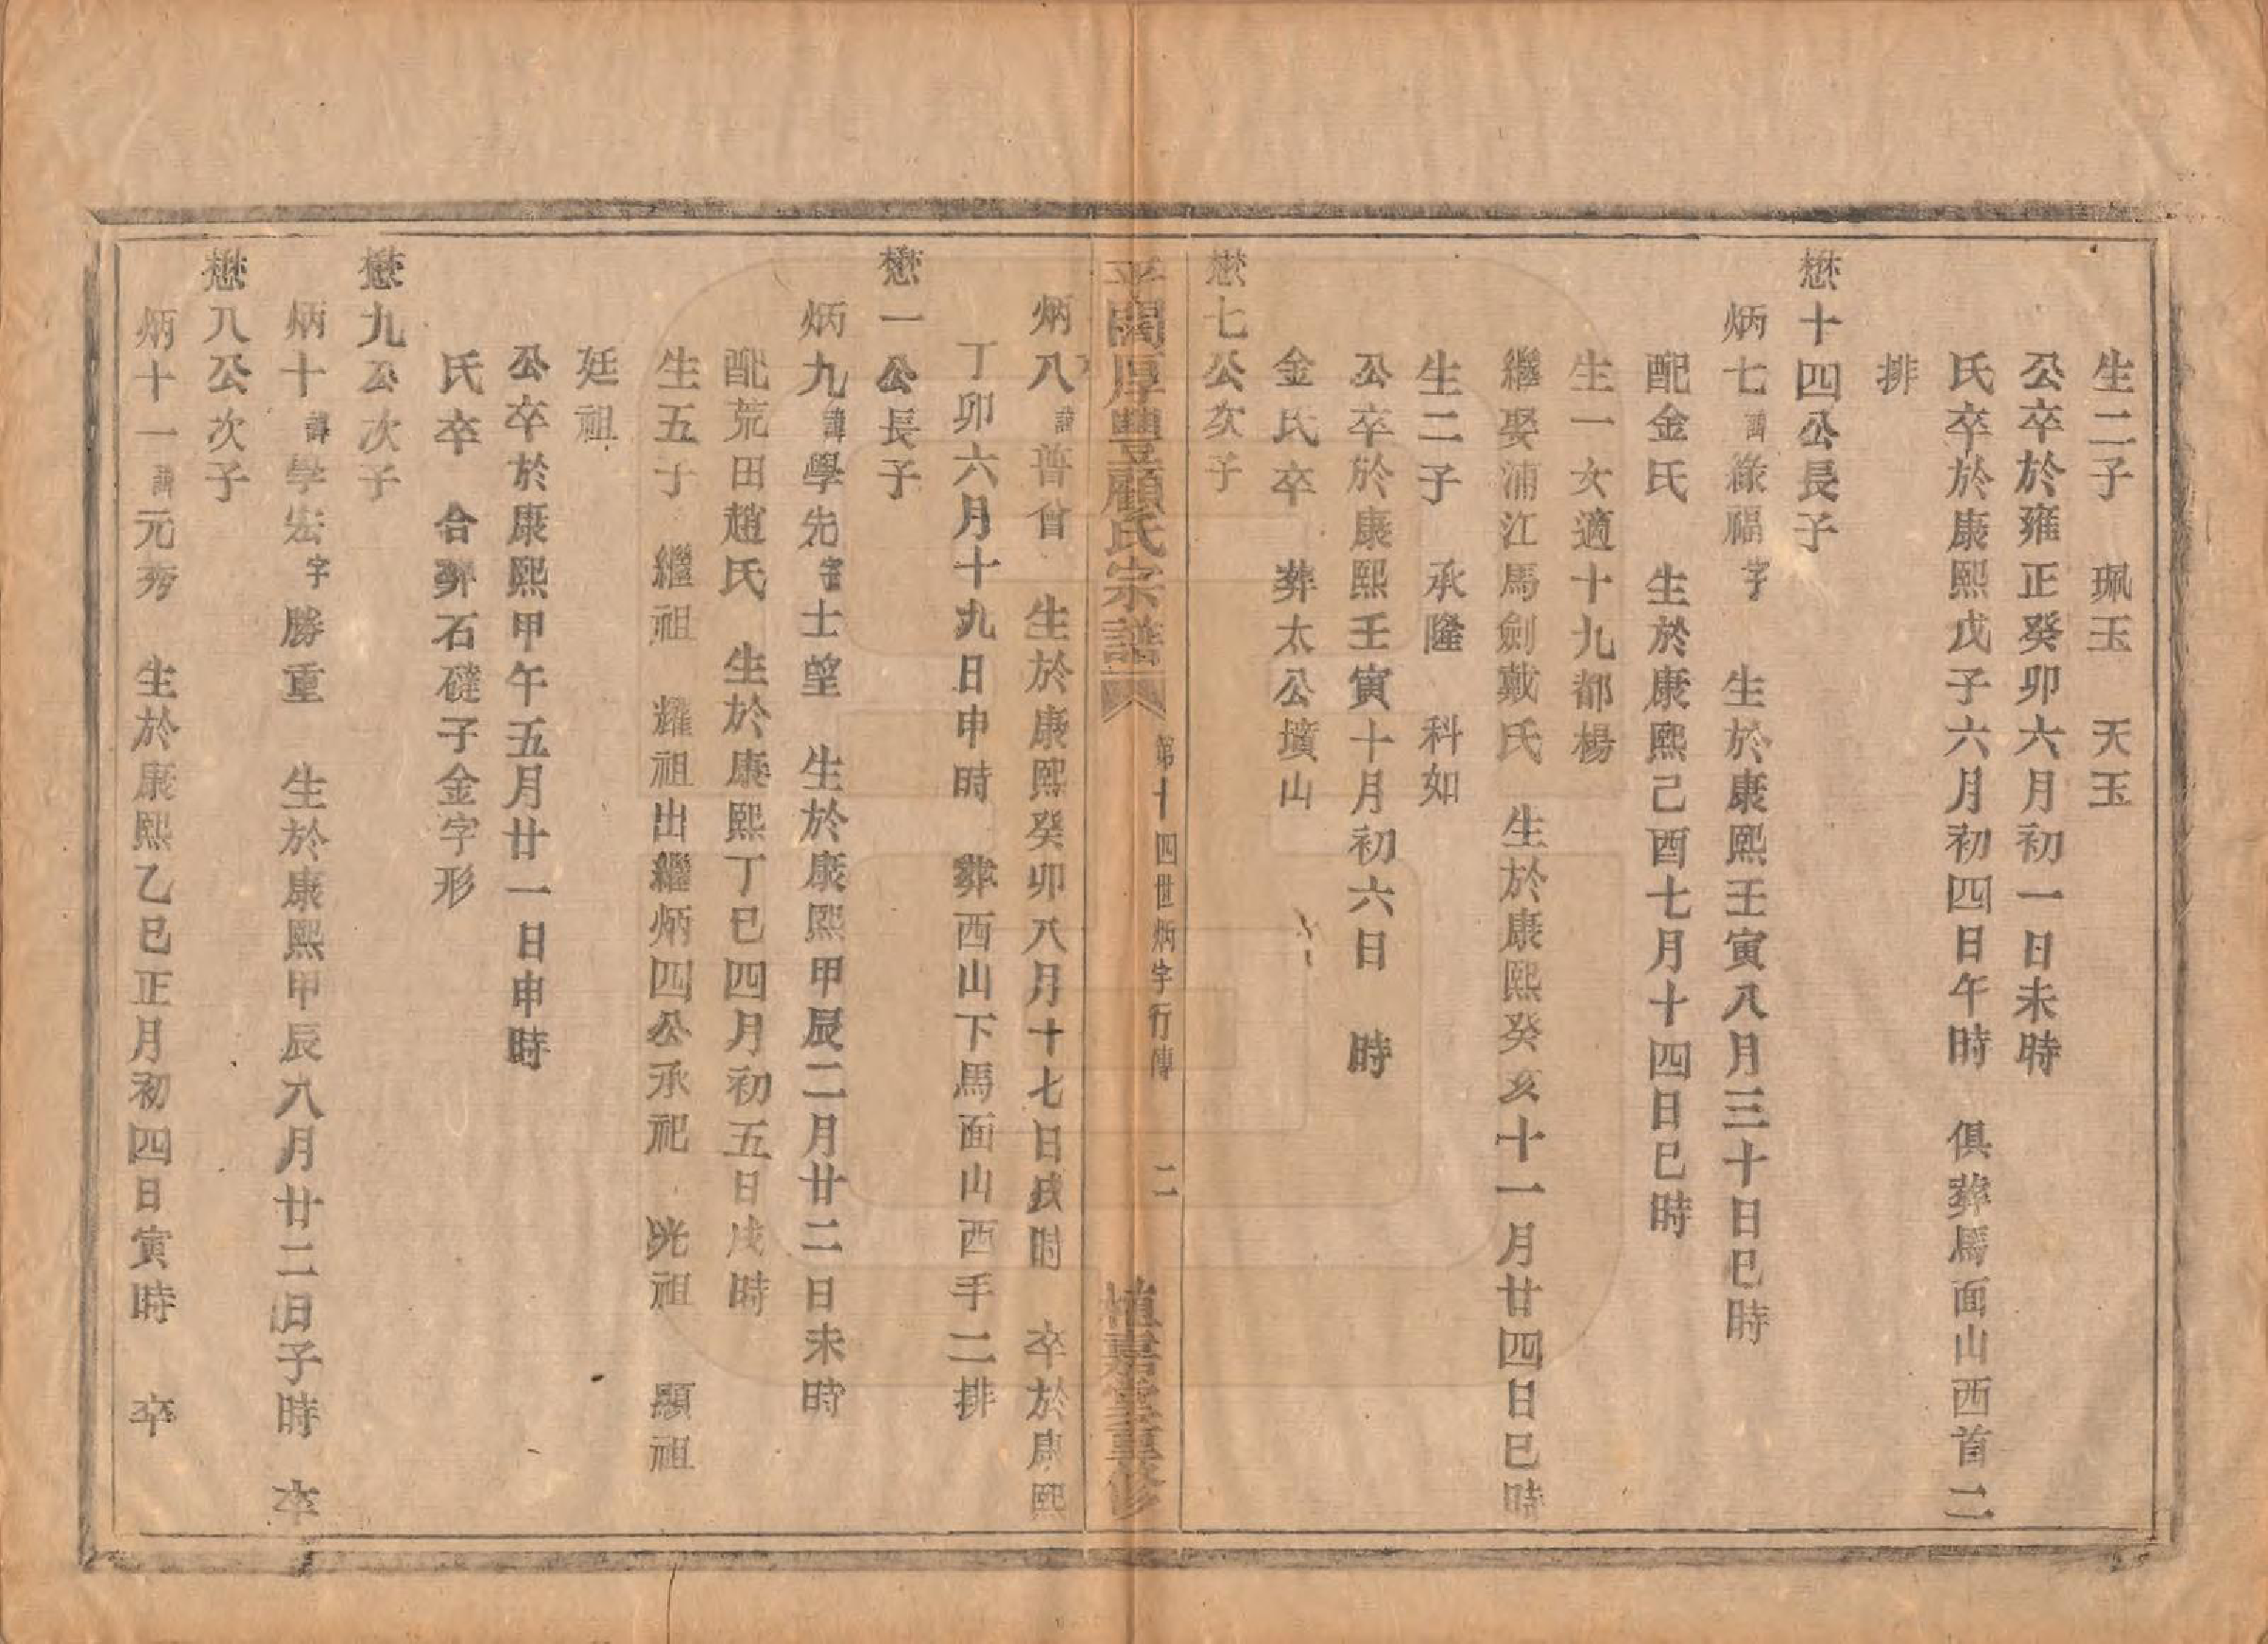 生二子　珮玉　天玉
公卒於雍正癸卯六月初一日未時
氏卒於康熙戊子六月初四日午時　俱葬馬面山西首二
排
懋十四公長子
炳七諱綠福字　生於康熙壬寅八月三十日巳時
配金氏　生於康熙己酉七月十四日巳時
生一女適十九都楊
繼娶浦江馬劍戴氏　生於康熙癸亥十一月廿四日巳時
生二子　承隆　科如
公卒於康熙壬寅十月初六日　時
金氏卒　葬太公墳山
懋七公次子
平闊厚豐顧氏宗譜　第十四世炳字行傳　二　嘉堂重修
炳八諱普曾　生於康熙癸卯八月十七日戌時　卒於康熙
丁卯六月十九日申時　葬西山下馬面山西手二排
懋一公長子
炳九諱學先字士望　生於康熙甲辰二月廿二日未時
配荒田趙氏　生於康熙丁巳四月初五日戌時
生五子　繼祖　耀祖出繼炳四公承祀　光祖　顯祖
廷祖
公卒於康熙甲午五月廿一日申時
氏卒　合葬石磋子金字形
懋九公次子
炳十諱學宏字勝重　生於康熙甲辰八月廿二日子時　卒
懋八公次子
炳十一諱元秀　生於康熙乙巳正月初四日寅時　卒